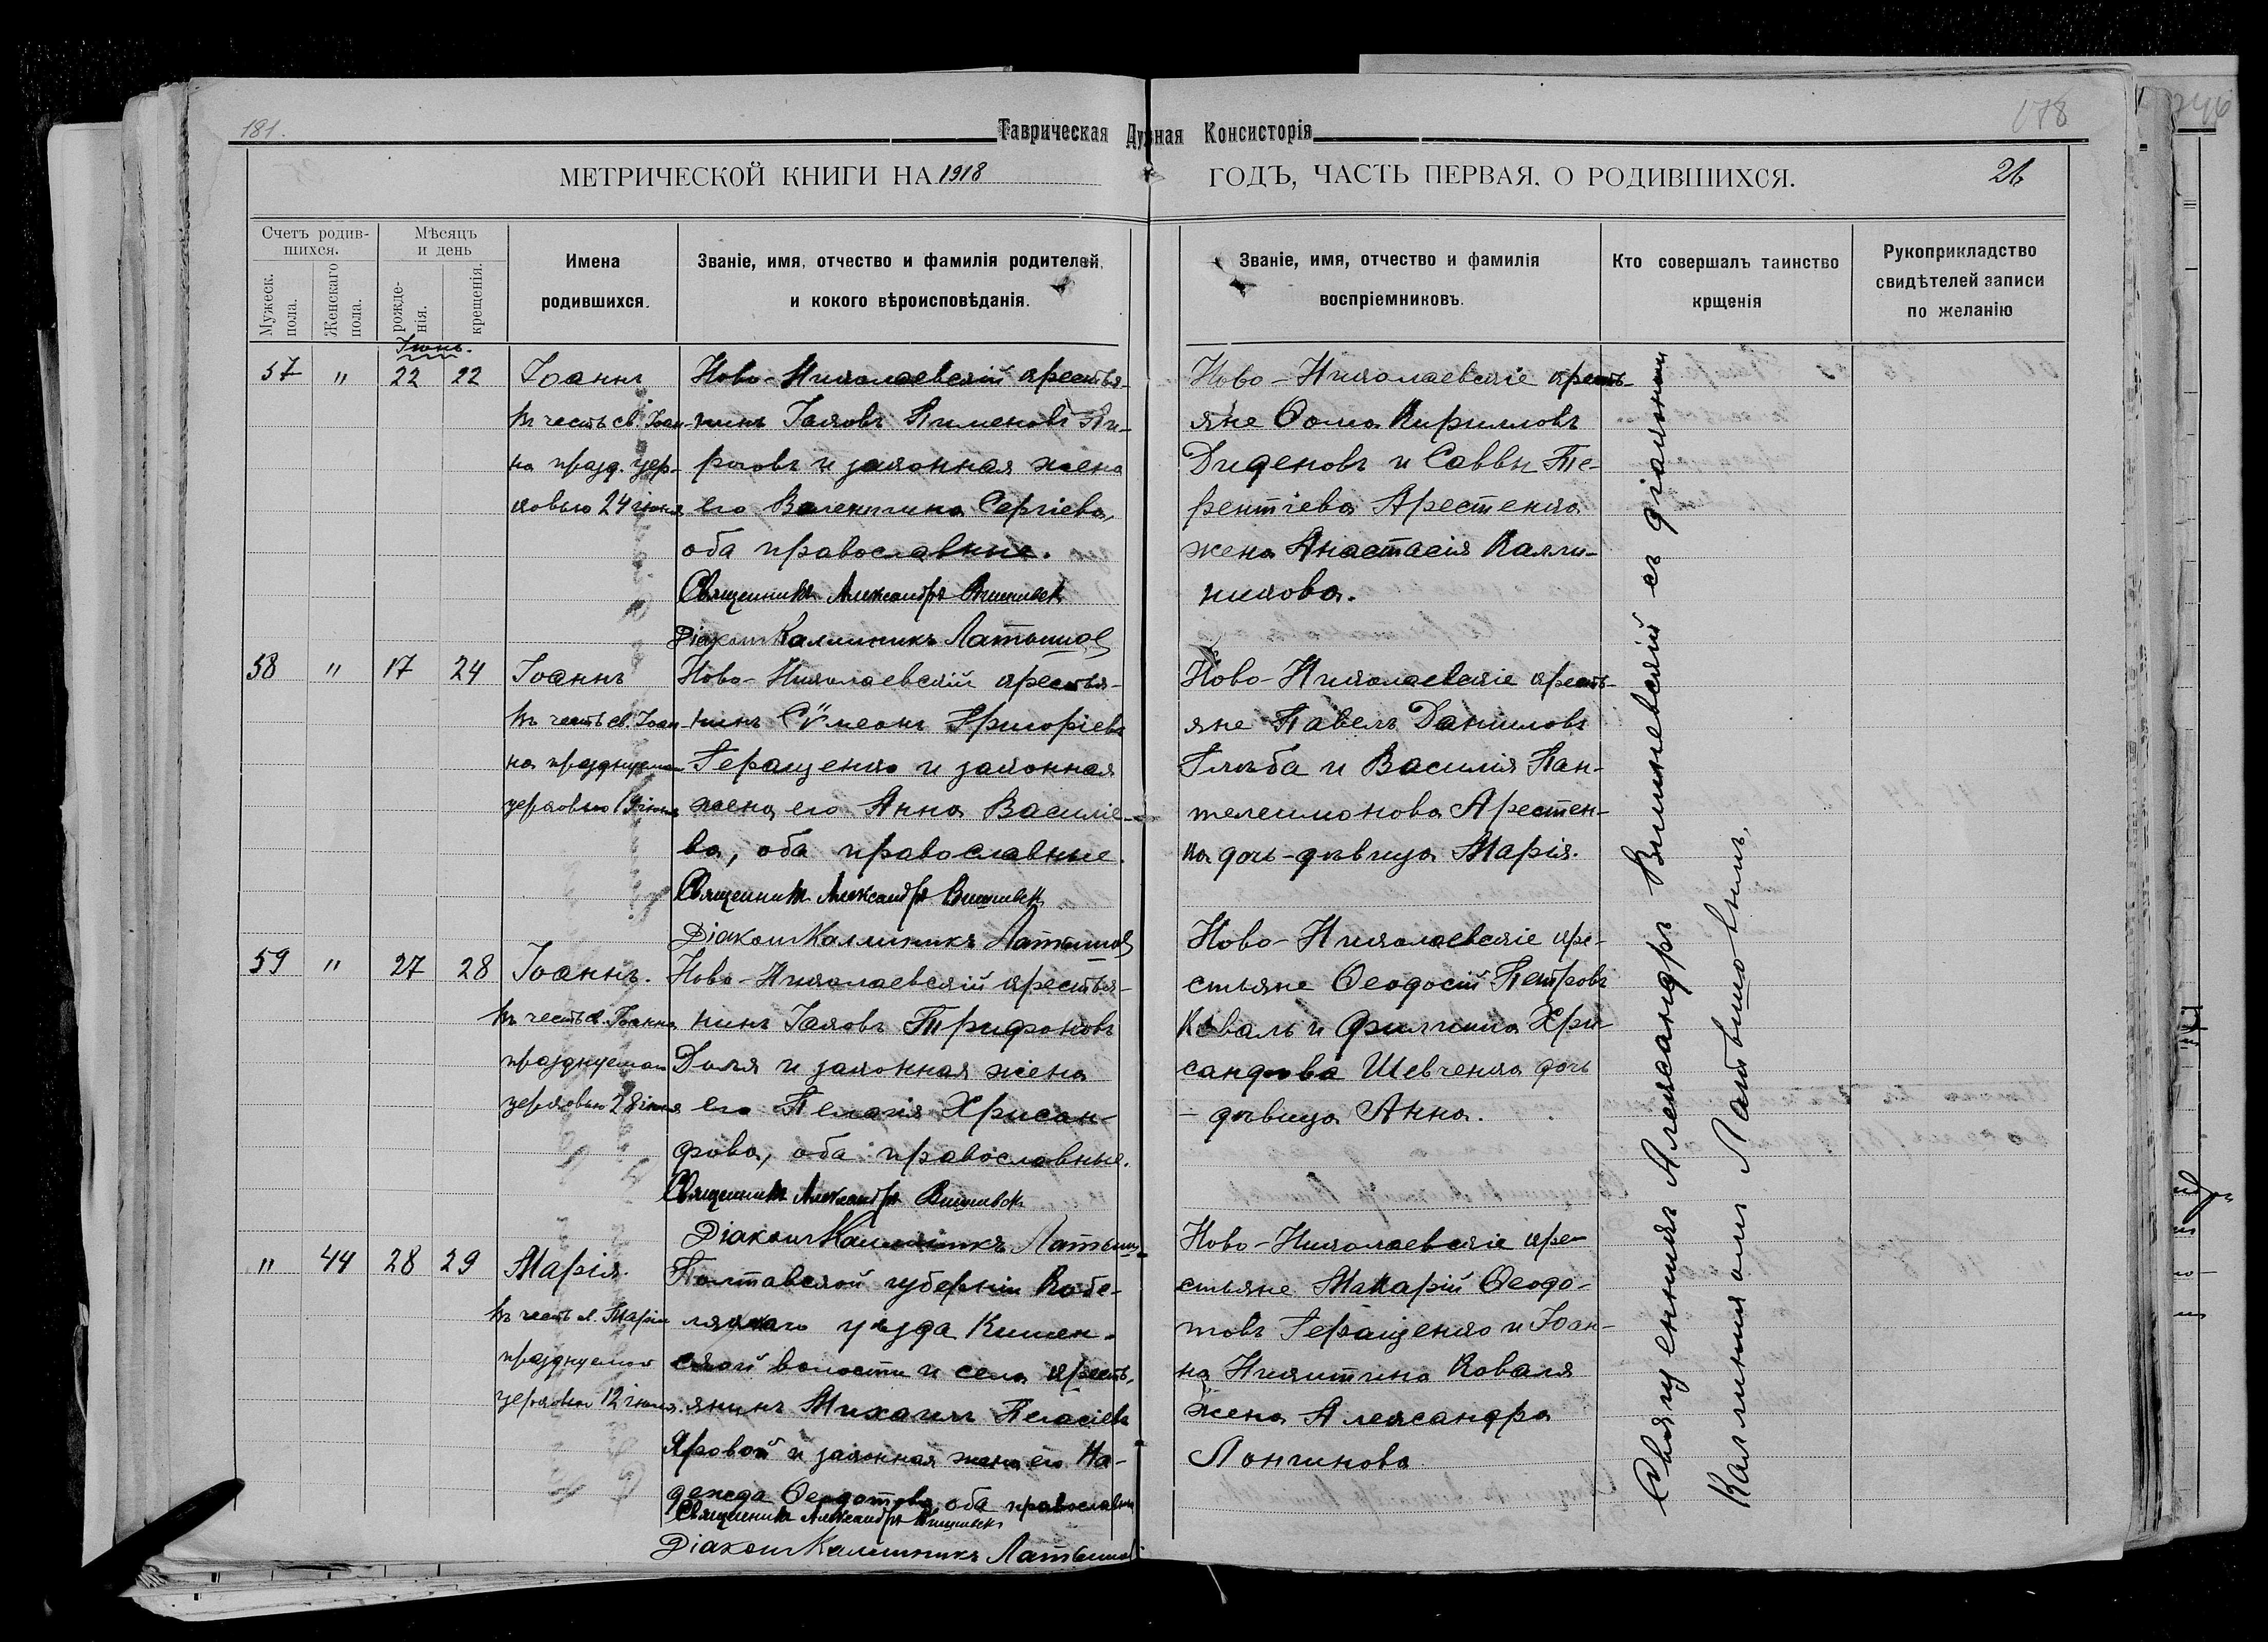 181.
178
246
Таврическая Духная Консисторія
МЕТРИЧЕСКОЙ КНИГИ НА 1918
ГОДЪ, ЧАСТЬ ПЕРВАЯ, О РОДИВШИХСЯ.
26
Счетъ родив-
шихся.
Мужеск.
пола.
Женскаго
пола.
Мѣсяцъ
и день
рожде-
нія.
крещенія.
Имена
родившихся.
Званіе, имя, отчество и фамилія родителей,
и кокого вѣроисповѣданія.
Званіе, имя, отчество и фамилія
воспріемниковъ.
Кто совершалъ таинство
крщенія
Рукоприкладство
свидѣтелей записи
по желанію
Іюнь.
57 " 22 22
Іоаннъ
въ честь св. Іоан-
на празд. цер-
ковью 24 іюня
Ново-Николаевскій крестья-
нинъ Іаковъ Пименовъ
и законная жена
его Валентина Сергіева,
оба православные.
Священникъ Александръ
Діаконъ Каллиникъ Латышов
Ново-Николаевскіе кресть-
яне Ѳома Кирилловъ
Диденовъ и Саввы Те-
рентіева Арестенка
жена Анастасія Калли-
никова.
58 " 17 24
Іоаннъ
въ честь св. Іоан-
на празднуемаго
церковью 19 іюня
Ново-Николаевскій крестья-
нинъ Сѵмеонъ Григоріевъ
Геращенко и законная
жена его Анна Василіе-
ва, оба православные.
Священникъ Александръ
Діаконъ Каллиникъ Латышов
Ново-Николаевскіе кресть-
яне Павелъ Даніиловъ
Глыба и Василія Пан-
телеимонова Арестен-
ка дочь-дѣвица Марія.
59 " 27 28
Іоаннъ.
въ честь св. Іоанна
празднуемаго
церковью 28 іюня
Ново-Николаевскій крестья-
нинъ Іаковъ Трифоновъ
Доля и законная жена
его Пелагія Хрисан-
фова, оба православные.
Священникъ Александръ
Діаконъ Каллиникъ Латыш
Ново-Николаевскіе кре-
стьяне Ѳеодосій Петровъ
Коваль и Филиппа Хри-
санфова Шевченка дочь
- дѣвица Анна.
" 44 28 29
Марія.
въ честь св. Маріи
празднуемой
церковью 12 іюля.
Полтавской губерніи Кобе-
лякскаго уѣзда Кишен-
ской волости и села кресть-
янинъ Михаилъ
Яровой и законная жена его На-
дежда Ѳеодотова, оба православны
Священникъ Александръ
Діаконъ Каллиникъ Латышов
Ново-Николаевскіе кре-
стьяне Макарій Ѳеодо-
товъ Геращенко и Іоан-
на Никитина Коваля
жена Александра
Лонгинова
Священникъ Александръ Вишневскій съ діакономъ
Каллиникомъ Латышовымъ.